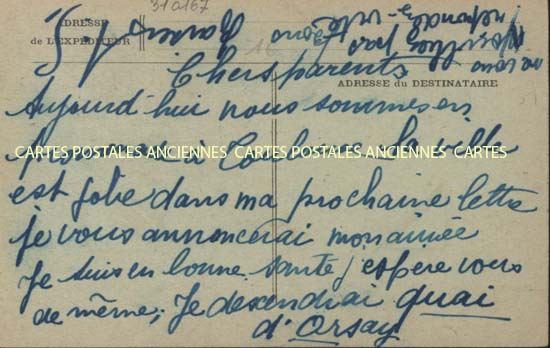 31a167
ADRESSE
de L'EXPÉDITEUR
ADRESSE du DESTINATAIRE
Chers parents
Aujourd'hui nous sommes en
à Toulouse la ville
CARTES POSTALES ANCIENNES CARTES POSTALES ANCIENNES CARTES
est jolie dans ma prochaine lettre
je vous annoncerai mon arrivée
Je suis en bonne santé j'espère vous
de même; Je descendrai quai
d'Orsay
pas
vite